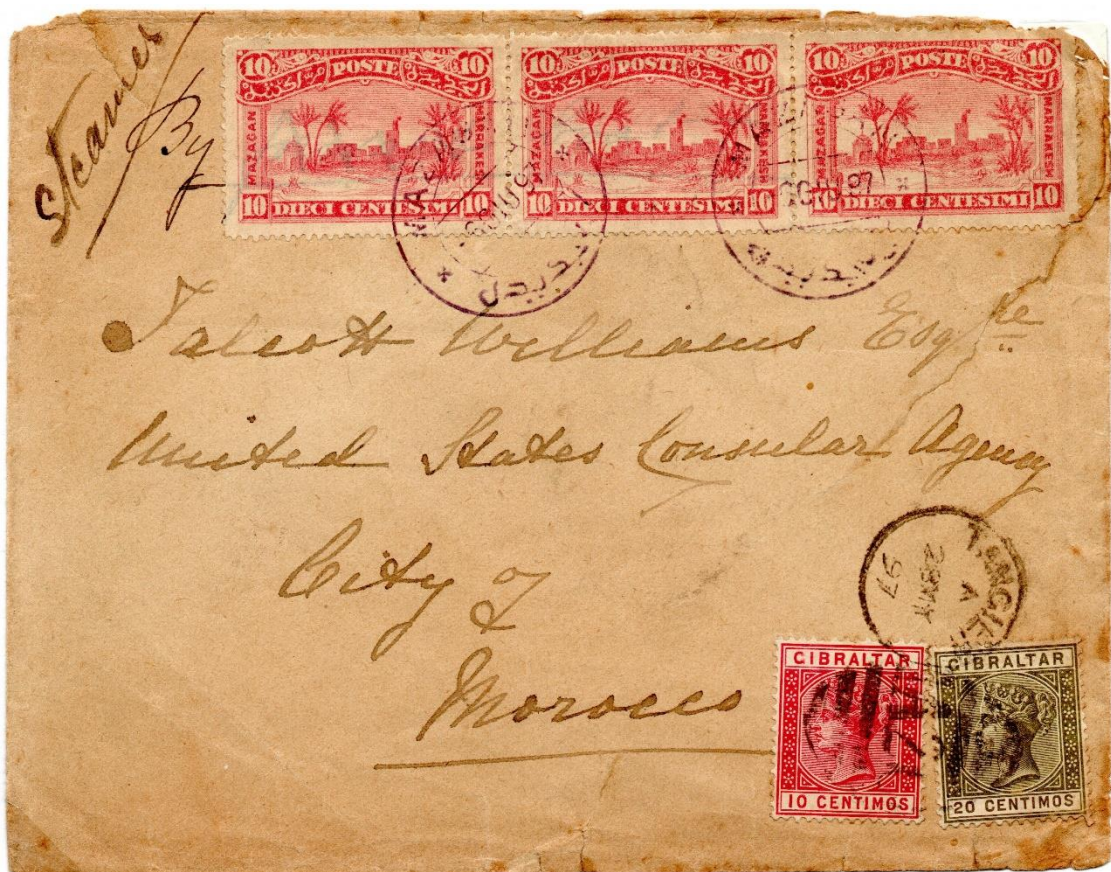 Steamer
By
10 POSTE 10
MAZAGAN
MARRAKESH
10 DIECI CENTESIMI 10
10 POSTE 10
MAZAGAN
MARRAKESH
10 DIECI CENTESIMI 10
10 POSTE 10
MAZAGAN
MARRAKESH
10 DIECI CENTESIMI 10
Talcott Williams Esqre
United States Consular Agency
City of
Morocco
TANGIER
A
97
GIBRALTAR
10 CENTIMOS
GIBRALTAR
20 CENTIMOS